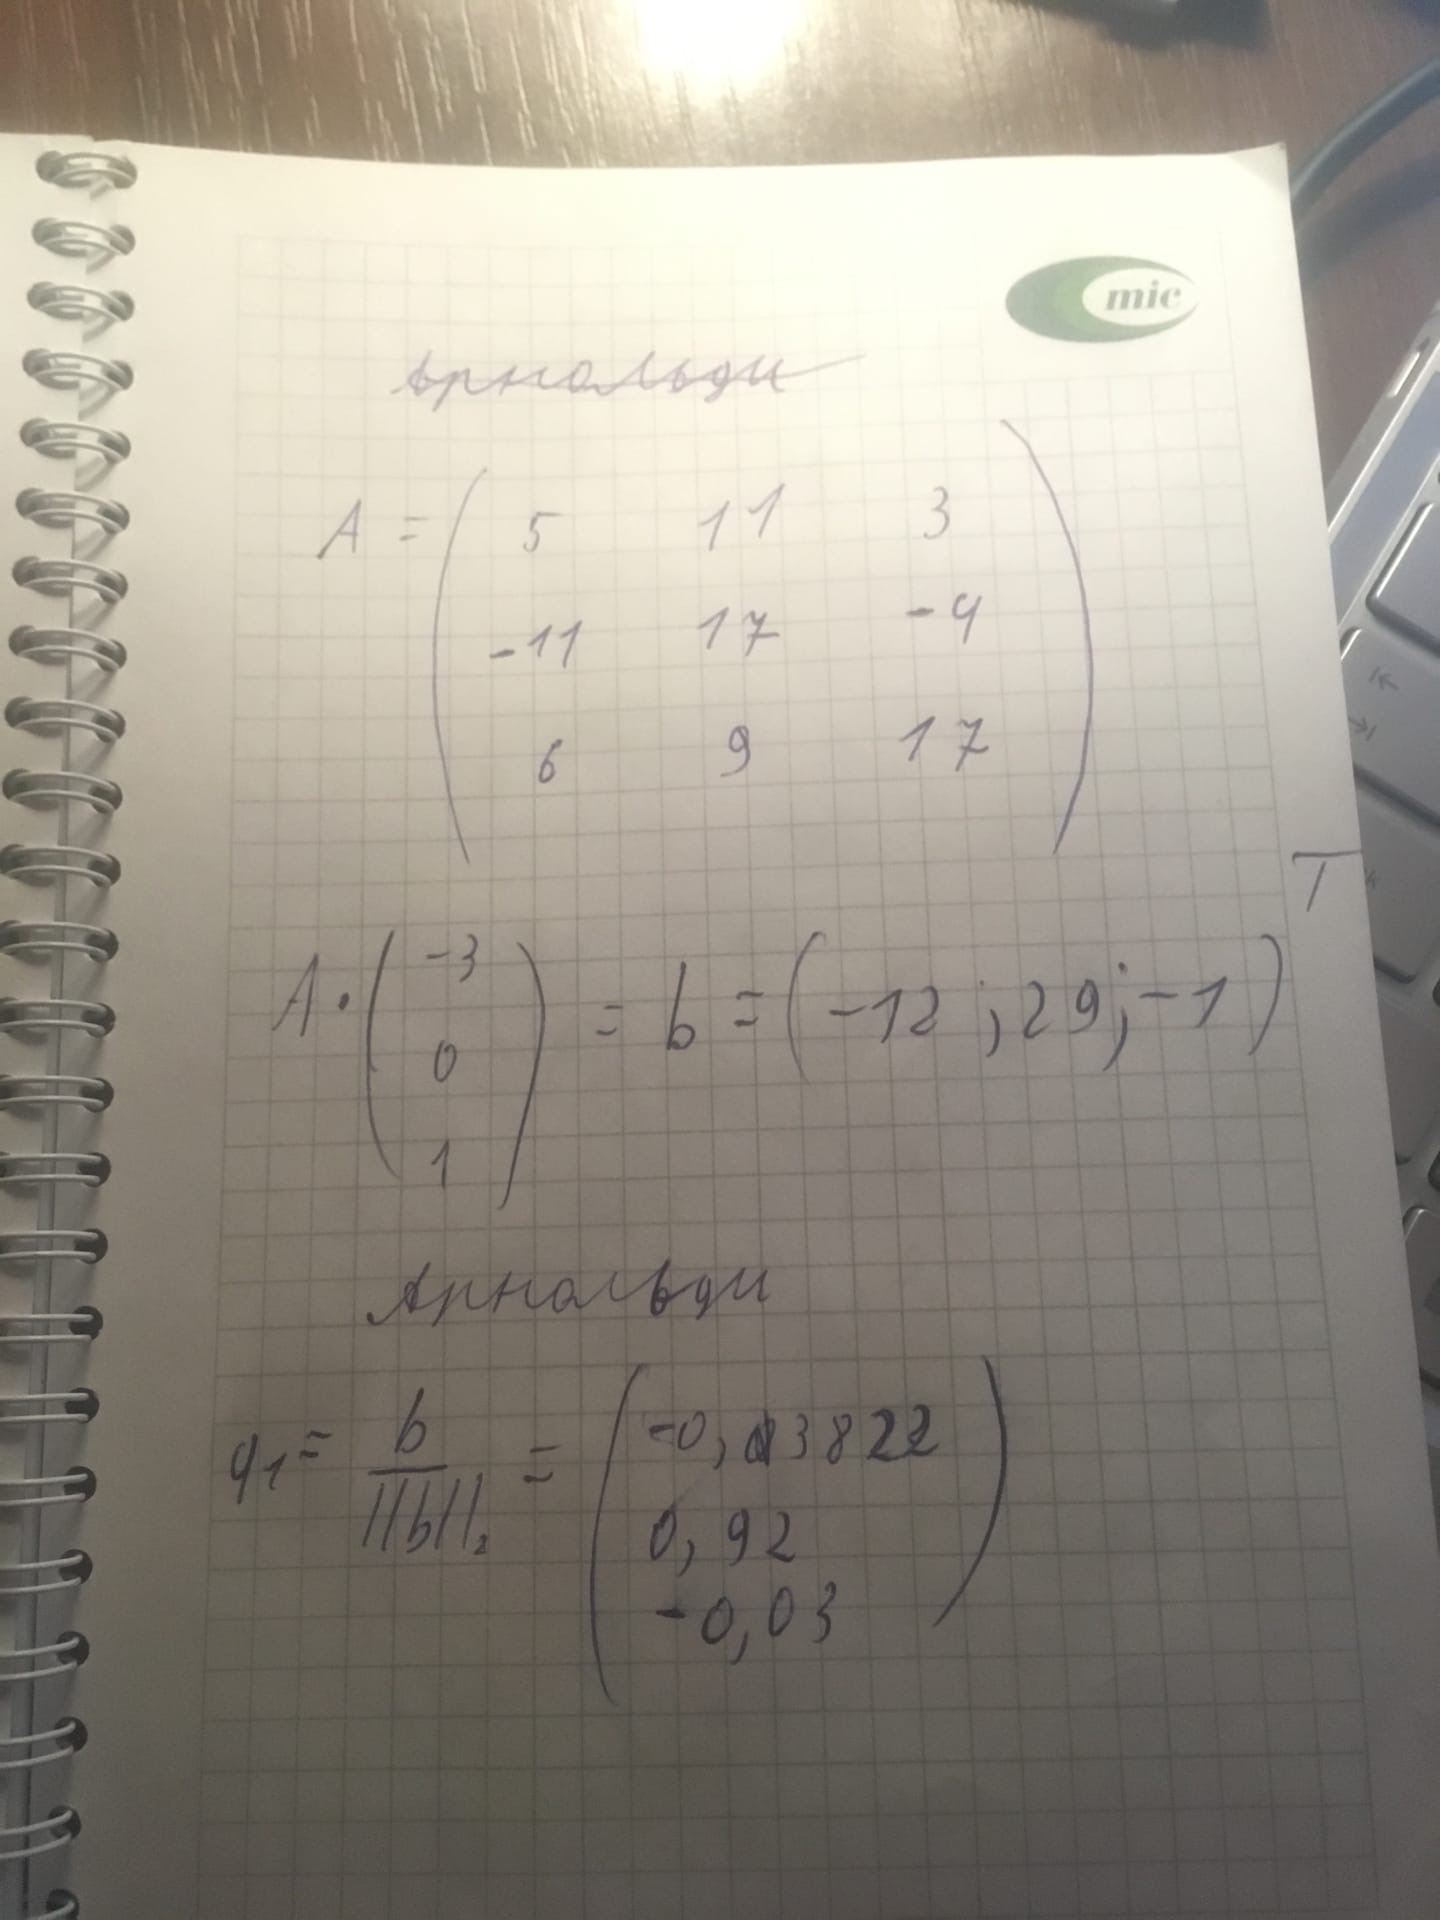 mic
Арнольди
A = ( 5 11 3
-11 17 -4
6 9 17 )
A · ( -3
0
1 ) = b = (-12 ; 29; -1)ᵀ
Арнольди
q₁ = b / ||b||₂ = ( -0,3822
0,92
-0,03 )